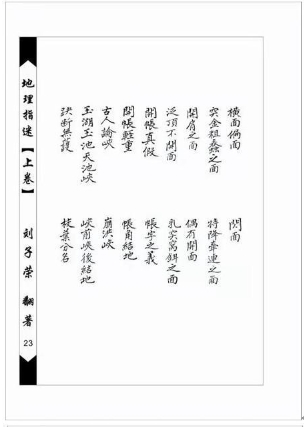 橫面偏面
突金粗蠢之面
開肩之面
泛頂不開面
開帳真假
開帳輕重
古人論峽
玉湖玉池天池峽
訣斷無護
閃面
特降牽連之面
偶有開面
乳突窩鉗之面
帳幕之義
帳角結地
崩洪峽
峽前峽後結地
枝葉分名
地理指迷【上卷】
刘子荣 翻著
23